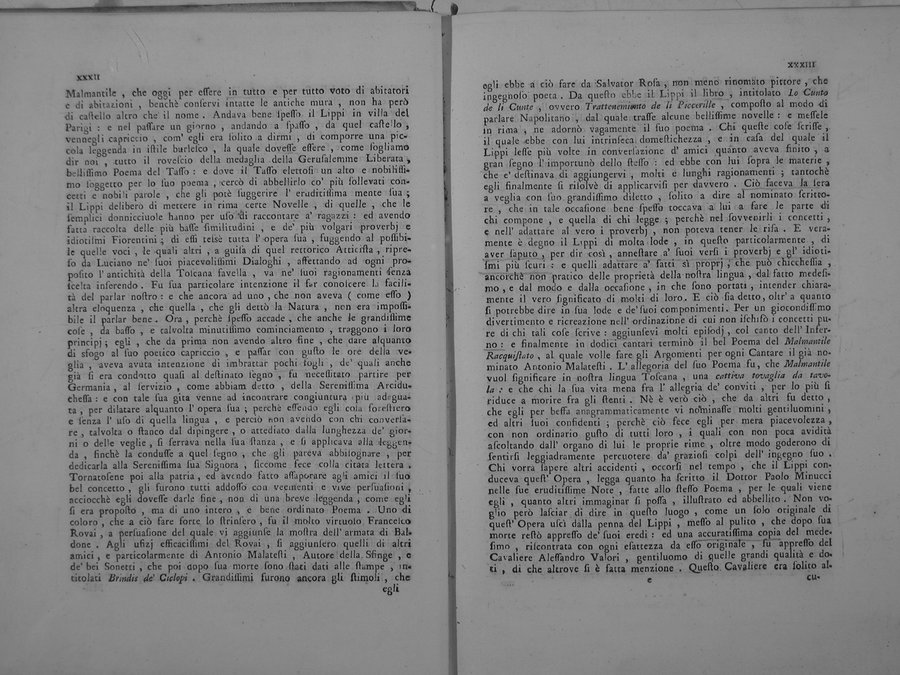 XXXII
Malmantile , che oggi per eſſere in tutto e per tutto voto di abitatori
e di abitazioni , benchè conſervi intatte le antiche mura , non ha però
di caſtello altro che il nome . Andava bene ſpeſſo il Lippi in villa del
Parigi : e nel paſſare un giorno , andando a ſpaſſo , da quel caſtello ,
vennegli capriccio , com' egli era ſolito a dirmi , di comporre una pic-
cola leggenda in iſtile burleſco , la quale doveſſe eſſere , come ſogliamo
dir noi , tutto il roveſcio della medaglia della Geruſalemme Liberata ,
belliſſimo Poema del Taſſo : e dove il Taſſo elettoſi un alto e nobiliſſi-
mo ſoggetto per lo ſuo poema , cercò di abbellirlo co' più ſollevati con-
cetti e nobili parole , che gli potè ſuggerire l' eruditiſſima mente ſua ;
il Lippi deliberò di mettere in rima certe Novelle , di quelle , che le
ſemplici donnicciuole hanno per uſo di raccontare a' ragazzi : ed avendo
fatta raccolta delle più baſſe ſimilitudini , e de' più volgari proverbj e
idiotiſmi Fiorentini ; di eſſi teſsè tutta l' opera ſua , fuggendo al poſſibi-
le quelle voci , le quali altri , a guiſa di quel rettorico Atticiſta , ripre-
ſo da Luciano ne' ſuoi piacevoliſſimi Dialoghi , affettando ad ogni pro-
poſito l' antichità della Toſcana favella , va ne' ſuoi ragionamenti ſenza
ſcelta inferendo . Fu ſua particolare intenzione il far conoſcere la facili-
tà del parlar noſtro : e che ancora ad uno , che non aveva ( come eſſo )
altra eloquenza , che quella , che gli dettò la Natura , non era impoſſi-
bile il parlar bene . Ora , perchè ſpeſſo accade , che anche le grandiſſime
coſe , da baſſo , e talvolta minutiſſimo cominciamento , traggono i loro
principj ; egli , che da prima non avendo altro fine , che dare alquanto
di sfogo al ſuo poetico capriccio , e paſſar con guſto le ore della ve-
glia , aveva avuta intenzione di imbrattar pochi fogli , de' quali anche
già ſi era condotto quaſi al deſtinato ſegno , fu neceſſitato partire per
Germania , al ſervizio , come abbiam detto , della Sereniſſima Arcidu-
cheſſa : e con tale ſua gita venne ad incontrare congiuntura più adegua-
ta , per dilatare alquanto l' opera ſua ; perchè eſſendo egli colà foreſtiero
e ſenza l' uſo di quella lingua , e perciò non avendo con chi converſa-
re , talvolta o ſtanco dal dipingere , o attediato dalla lunghezza de' gior-
ni o delle veglie , ſi ſerrava nella ſua ſtanza , e ſi applicava alla leggen-
da , finchè la conduſſe a quel ſegno , che gli pareva abbiſognare , per
dedicarla alla Sereniſſima ſua Signora , ſiccome fece colla citata lettera .
Tornatoſene poi alla patria , ed avendo fatto aſſaporare agli amici il ſuo
bel concetto , gli furono tutti addoſſo con veementi e vive perſuaſioni ,
acciocchè egli doveſſe darle fine , non di una breve leggenda , come egli
ſi era propoſto , ma di uno intero , e bene ordinato Poema . Uno di
coloro , che a ciò fare forte lo ſtrinſero , fu il molto virtuoſo Franceſco
Rovai , a perſuaſione del quale vi aggiunſe la moſtra dell' armata di Bal-
done . Agli ufizj efficaciſſimi del Rovai , ſi aggiunſero quelli di altri
amici , e particolarmente di Antonio Malateſti , Autore della Sfinge , e
de' bei Sonetti , che poi dopo ſua morte ſono ſtati dati alle ſtampe , in-
titolati Brindis de' Ciclopi . Grandiſſimi furono ancora gli ſtimoli , che
egli
XXXIII
egli ebbe a ciò fare da Salvator Roſa , non meno rinomato pittore , che
ingegnoſo poeta . Da queſto ebbe il Lippi il libro , intitolato Lo Cunto
de li Cunte , ovvero Trattenemiento de li Piccerille , compoſto al modo di
parlare Napolitano , dal quale traſſe alcune belliſſime novelle : e meſſele
in rima , ne adornò vagamente il ſuo poema . Chi queſte coſe ſcriſſe ,
il quale ebbe con lui intrinſeca domeſtichezza , e in caſa del quale il
Lippi leſſe più volte in converſazione d' amici quanto aveva finito , a
gran ſegno l' importunò dello ſteſſo : ed ebbe con lui ſopra le materie ,
che e' deſtinava di aggiungervi , molti e lunghi ragionamenti ; tantochè
egli finalmente ſi riſolvè di applicarviſi per davvero . Ciò faceva la ſera
a veglia con ſuo grandiſſimo diletto , ſolito a dire al nominato ſcritto-
re , che in tale occaſione bene ſpeſſo toccava a lui a fare le parte di
chi compone , e quella di chi legge ; perchè nel ſovvenirli i concetti ,
e nell' adattare al vero i proverbj , non poteva tener le riſa . E vera-
mente è degno il Lippi di molta lode , in queſto particolarmente , di
aver ſaputo , per dir così , anneſtare a' ſuoi verſi i proverbj e gl' idioti-
ſmi più ſcuri : e quelli adattare a' fatti sì proprj , che può chiccheſſia ,
ancorchè non pratico delle proprietà della noſtra lingua , dal fatto medeſi-
mo , e dal modo e dalla occaſione , in che ſono portati , intender chiara-
mente il vero ſignificato di molti di loro . E ciò ſia detto , oltr' a quanto
ſi potrebbe dire in ſua lode e de' ſuoi componimenti . Per un giocondiſſimo
divertimento e ricreazione nell' ordinazione di cui non iſchifò i concetti pu-
re di chi tali coſe ſcrive : aggiunſevi molti epiſodj , col canto dell' Infer-
no : e finalmente in dodici cantari terminò il bel Poema del Malmantile
Racquiſtato , al quale volle fare gli Argomenti per ogni Cantare il già no-
minato Antonio Malateſti . L' allegoria del ſuo Poema fu , che Malmantile
vuol ſignificare in noſtra lingua Toſcana , una cattiva tovaglia da tavo-
la : e che chi la ſua vita mena fra l' allegria de' conviti , per lo più ſi
riduce a morire fra gli ſtenti . Nè è vero ciò , che da altri fu detto ,
che egli per beffa anagrammaticamente vi nominaſſe molti gentiluomini ,
ed altri ſuoi confidenti ; perchè ciò fece egli per mera piacevolezza ,
con non ordinario guſto di tutti loro , i quali con non poca avidità
aſcoltando dall' organo di lui le proprie rime , oltre modo goderono di
ſentirſi leggiadramente percuotere da' grazioſi colpi dell' ingegno ſuo .
Chi vorrà ſapere altri accidenti , occorſi nel tempo , che il Lippi con-
duceva queſt' Opera , legga quanto ha ſcritto il Dottor Paolo Minucci
nelle ſue eruditiſſime Note , fatte allo ſteſſo Poema , per le quali viene
egli , quanto altri immaginar ſi poſſa , illuſtrato ed abbellito . Non vo-
glio però laſciar di dire in queſto luogo , come un ſolo originale di
queſt' Opera uſcì dalla penna del Lippi , meſſo al pulito , che dopo ſua
morte reſtò appreſſo de' ſuoi eredi : ed una accuratiſſima copia del mede-
ſimo , riſcontrata con ogni eſattezza da eſſo originale , fu appreſſo del
Cavaliere Aleſſandro Valori , gentiluomo di quelle grandi qualità e do-
ti , di che altrove ſi è fatta menzione . Queſto Cavaliere era ſolito al-
e cu-